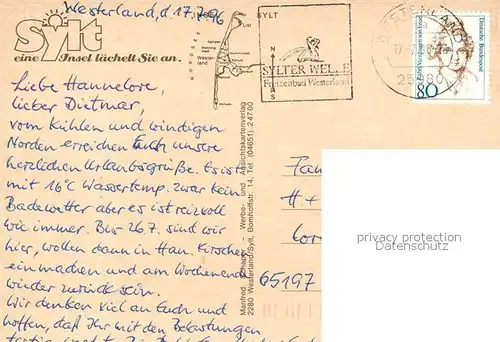 Westerland, d. 17.7.96
Sylt
eine Insel lächelt Sie an.
Liebe Hannelore,
lieber Dietmar,
vom kühlen und windigen
Norden erreichen Euch unsere
herzlichen Urlaubsgrüße. Es ist
mit 16°C Wassertemp. zwar kein
Badewetter aber es ist reizvoll
wie immer. Bis 26.7. sind wir
hier, wollen dann in Han. Kirschen
einmachen und am Wochenende
wieder zurück sein.
Wir denken viel an Euch und
hoffen, daß Ihr mit den Belastungen
NORDSEE
List
Westerland
SYLT
N
S
SYLTER WELLE
Freizeitbad Westerland
WESTERLAND
17.-7.
25980
Deutsche Bundespost
80
Manfred Uhlschaper Werbe- und Ansichtskartenverlag
2280 Westerland/Sylt, Bomhoffstr. 14, Tel. (04651) 24700
Fam
H. +
Lor
65197
privacy protection
Datenschutz